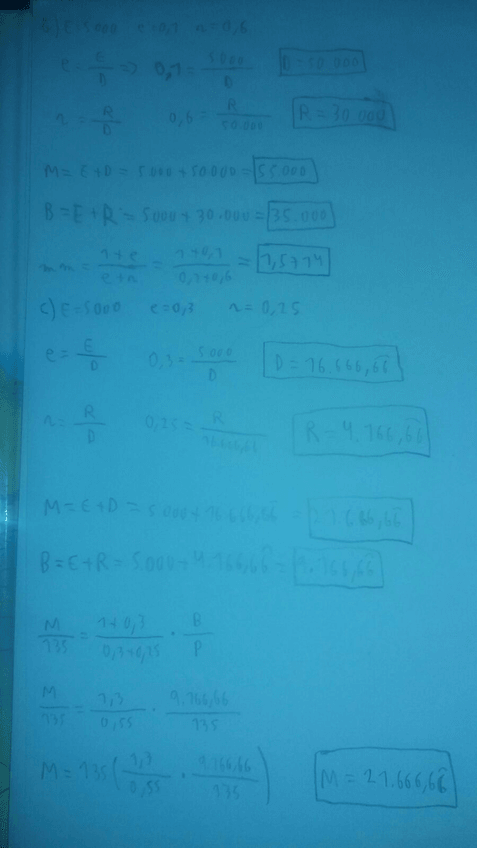 b) E=5000 e=0,1 r=0,6
e = E/D => 0,1 = 5.000/D D=50.000
r = R/D 0,6 = R/50.000 R=30.000
M = E+D = 5000+50000 = 55.000
B = E+R = 5000+30.000 = 35.000
mm = 1+e/e+r = 1+0,1/0,1+0,6 = 1,5714
c) E=5000 e=0,3 r=0,25
e = E/D 0,3 = 5.000/D D=16.666,66
r = R/D 0,25 = R/16.666,66 R=4.166,66
M = E+D = 5.000+16.666,66 = 21.666,66
B = E+R = 5.000+4.166,66 = 9.166,66
M/135 = 1+0,3/0,3+0,25 · B/P
M/135 = 1,3/0,55 · 9.166,66/135
M = 135(1,3/0,55 · 9.166,66/135) M=21.666,66